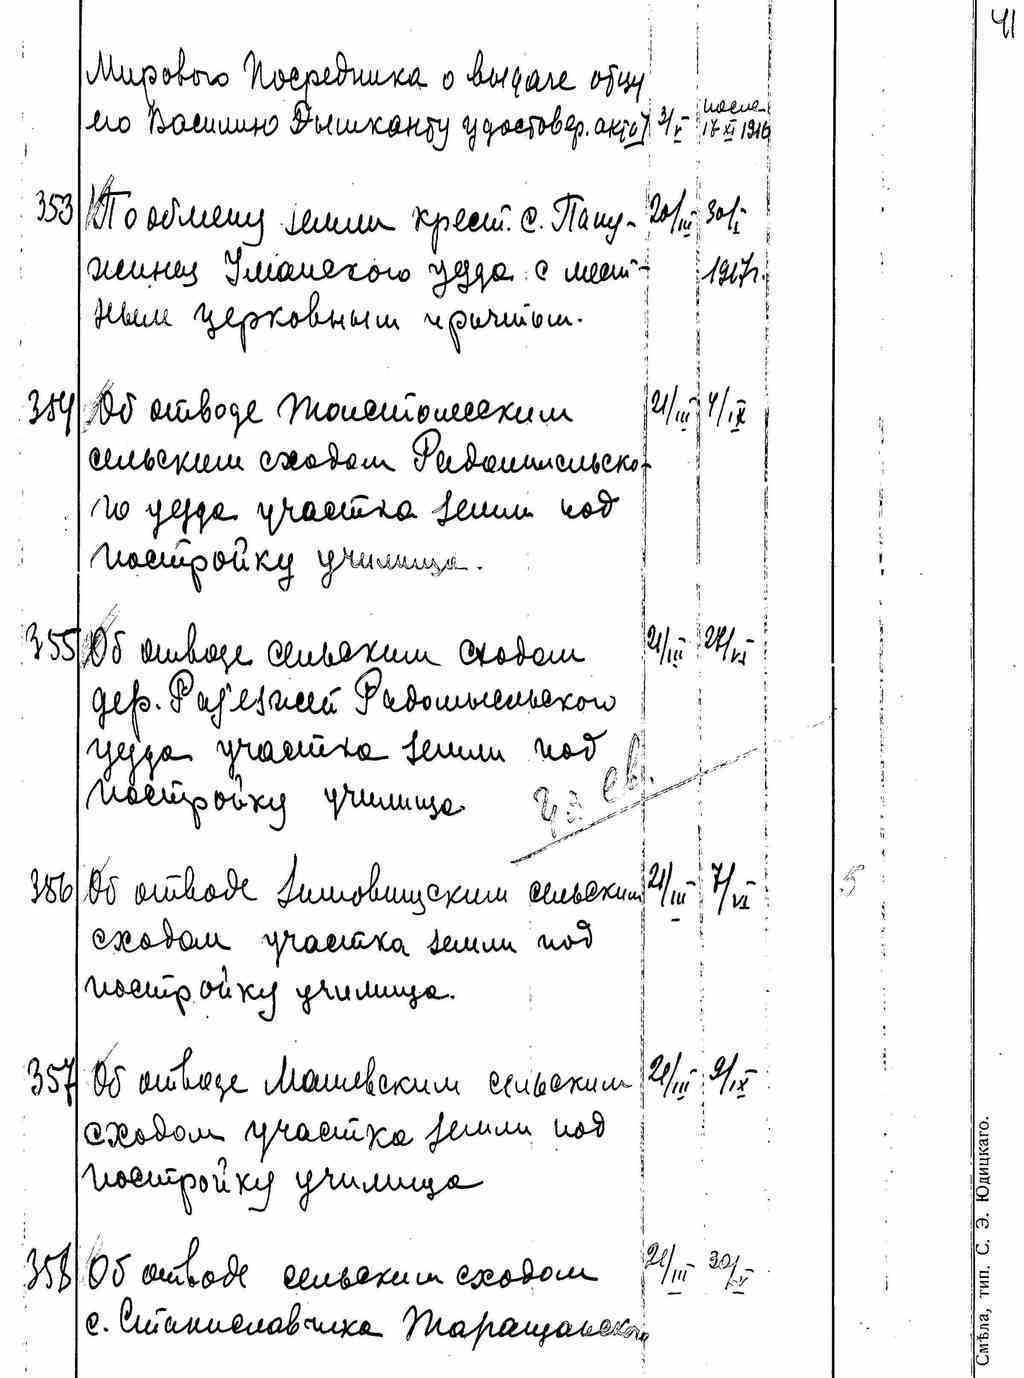 41
Мирового Посредника о выдаче отцу
его Василию Дышканту удостовер. акта 3/V после 17 XI 1916
353 По обмену земли крест. с. Папу- 20/III 30/I
жинец Уманского уезда с мест- 1917г.
ным церковным причтом.
354 Об отводе Тонстолесским 21/III 4/IX
сельским сходом Радомысельско-
го уезда участка земли под
постройку училища.
355 Об отводе сельским сходом 21/III 27/VI
дер. Раз'езжей Радомысельского
уезда участка земли под
постройку училища
356 Об отводе Зимовищским сельским 21/III 7/VI 5
сходом участка земли под
постройку училища.
357 Об отводе Машевским сельским 21/III 9/IX
сходом участка земли под
постройку училища
358 Об отводе сельским сходом 21/III
с. Станиславчика Таращанского
Смѣла, тип. С. Э. Юдицкаго.